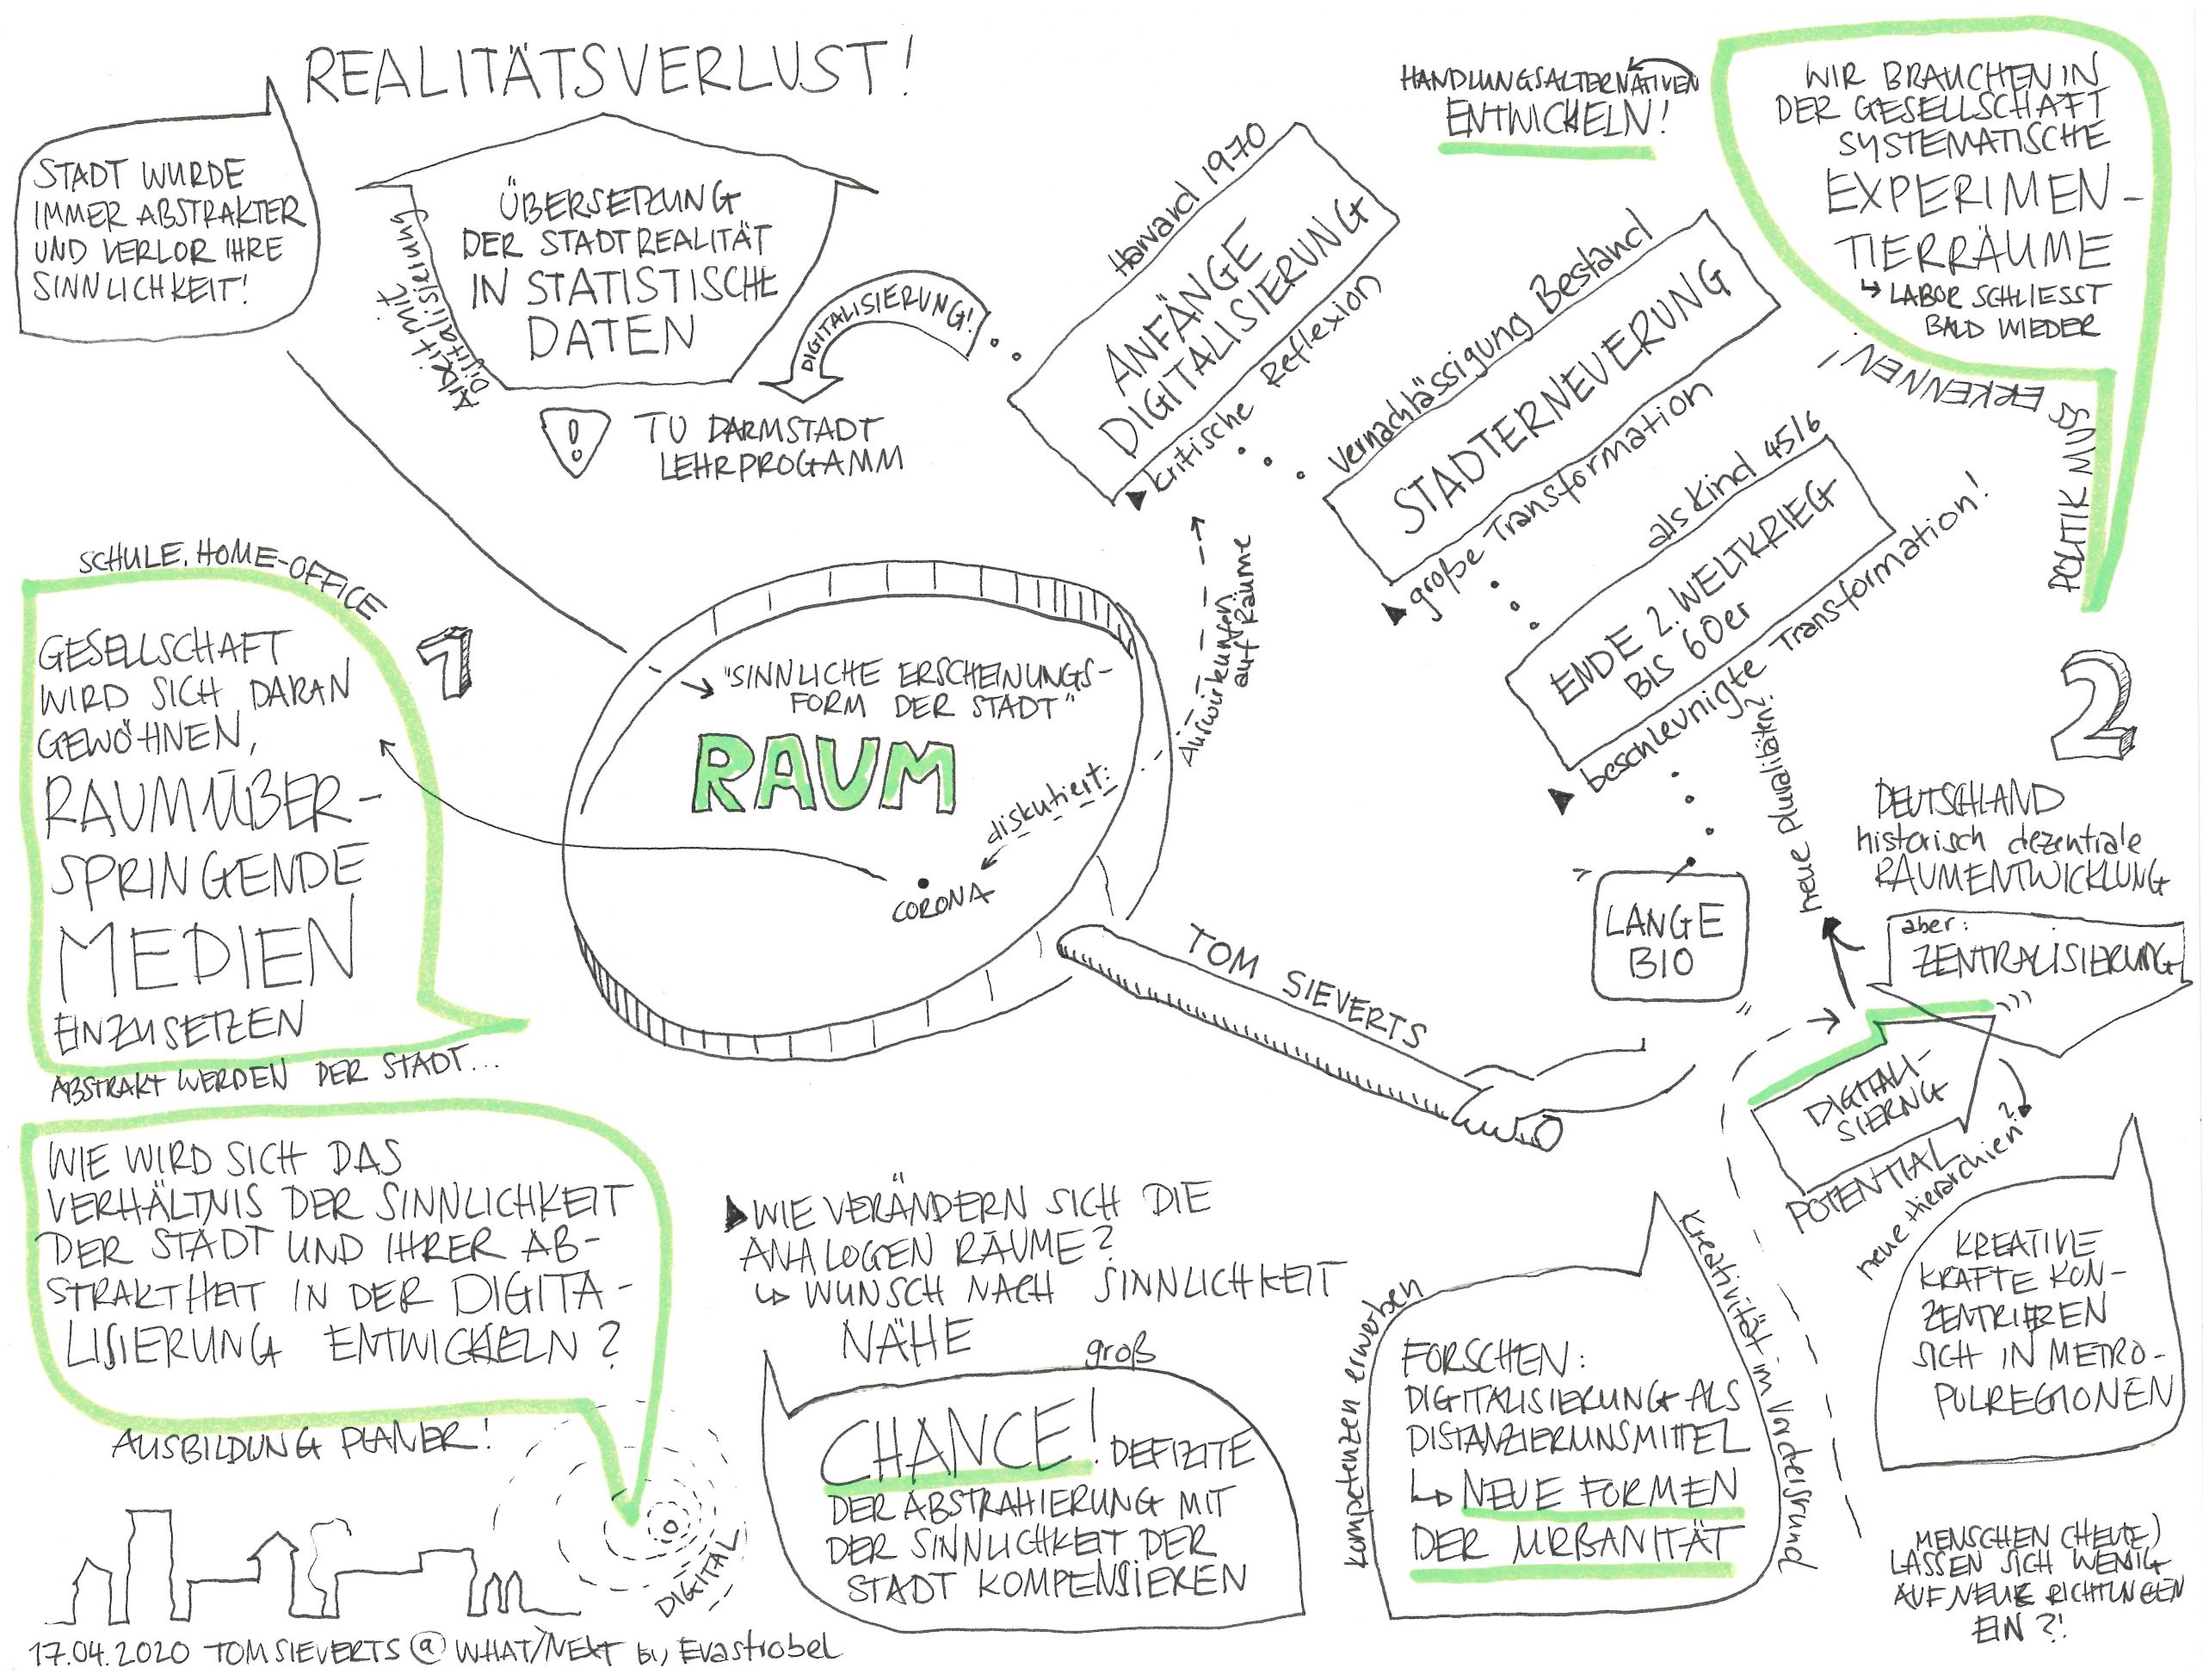 REALITÄTSVERLUST!
STADT WURDE
IMMER ABSTRAKTER
UND VERLOR IHRE
SINNLICHKEIT!
ÜBERSETZUNG
DER STADTREALITÄT
IN STATISTISCHE
DATEN
Arbeit mit
Digitalisierung
DIGITALISIERUNG!
!
TU DARMSTADT
LEHRPROGAMM
Harvard 1970
ANFÄNGE
DIGITALISIERUNG
kritische Reflexion
Vernachlässigung Bestand
STADTERNEUERUNG
große Transformation
als Kind 45/6
ENDE 2. WELTKRIEG
BIS 60er
beschleunigte Transformation!
LANGE
BIO
HANDLUNGSALTERNATIVEN
ENTWICKELN!
WIR BRAUCHEN IN
DER GESELLSCHAFT
SYSTEMATISCHE
EXPERIMEN-
TIERRÄUME
↳ LABOR SCHLIESST
BALD WIEDER
POLITIK MUSS ERKENNEN!
SCHULE, HOME-OFFICE
1
GESELLSCHAFT
WIRD SICH DARAN
GEWÖHNEN,
RAUMÜBER-
SPRINGENDE
MEDIEN
EINZUSETZEN
ABSTRAKT WERDEN DER STADT...
"SINNLICHE ERSCHEINUNGS-
FORM DER STADT"
RAUM
diskutiert:
CORONA
Auswirkungen
auf Räume
TOM SIEVERTS
2
DEUTSCHLAND
historisch dezentrale
RAUMENTWICKLUNG
aber:
ZENTRALISIERUNG
neue Pluralitäten?
DIGITALI-
SIERNG
POTENTIAL
neue Hierarchien?
KREATIVE
KRÄFTE KON-
ZENTRIEREN
SICH IN METRO-
POLREGIONEN
MENSCHEN (HEUTE)
LASSEN SICH WENIG
AUF NEUE RICHTUNGEN
EIN?!
WIE WIRD SICH DAS
VERHÄLTNIS DER SINNLICHKEIT
DER STADT UND IHRER AB-
STRAKTHEIT IN DER DIGITA-
LISIERUNG ENTWICKELN?
AUSBILDUNG PLANER!
DIGITAL
WIE VERÄNDERN SICH DIE
ANALOGEN RÄUME?
↳ WUNSCH NACH SINNLICHKEIT
NÄHE
groß
CHANCE! DEFIZITE
DER ABSTRAHIERUNG MIT
DER SINNLICHKEIT DER
STADT KOMPENSIEREN
Kompetenzen erwerben
FORSCHEN:
DIGITALISIERUNG ALS
DISTANZIERUNSMITTEL
↳ NEUE FORMEN
DER URBANITÄT
Kreativität im Vordergrund
17.04.2020 TOM SIEVERTS @ WHAT/NEXT by Evastrobel